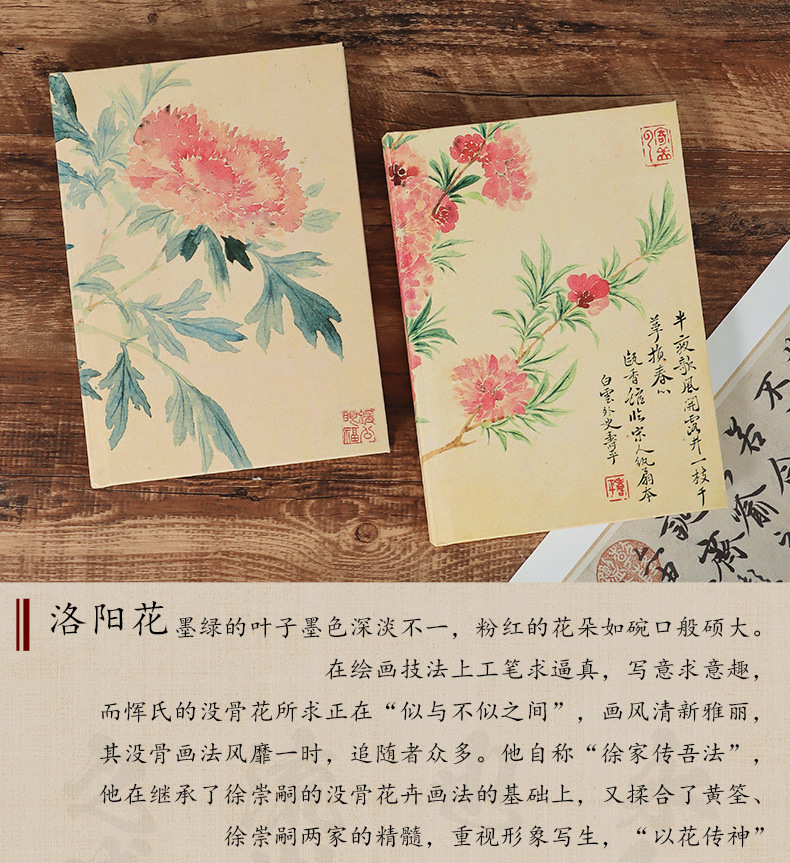 半夜歌風開露井一枝千
萼損春心
甌香館臨宋人紈扇本
白雲外史壽平
洛阳花 墨绿的叶子墨色深淡不一，粉红的花朵如碗口般硕大。
在绘画技法上工笔求逼真，写意求意趣，
而恽氏的没骨花所求正在“似与不似之间”，画风清新雅丽，
其没骨画法风靡一时，追随者众多。他自称“徐家传吾法”，
他在继承了徐崇嗣的没骨花卉画法的基础上，又揉合了黄筌、
徐崇嗣两家的精髓，重视形象写生，“以花传神”